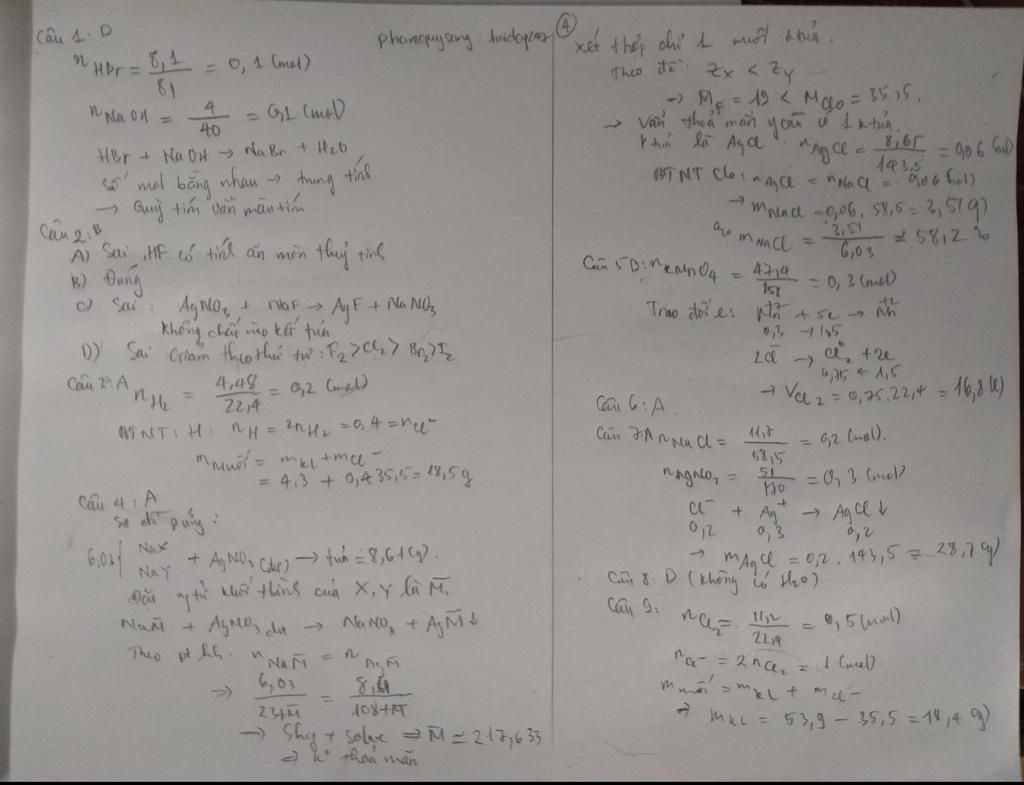 Câu 1: D
phamquysang hoidap247
n HBr = 8,1/81 = 0,1 (mol)
n NaOH = 4/40 = 0,1 (mol)
HBr + NaOH → NaBr + H2O
số mol bằng nhau → trung tính
→ Quỳ tím vẫn màu tím
Câu 2: B
A) Sai, HF có tính ăn mòn thuỷ tinh
B) Đúng
C) Sai: AgNO3 + NaF → AgF + NaNO3
không chất nào kết tủa
D) Sai Giảm theo thứ tự: F2 > Cl2 > Br2 > I2
Câu 3: A n H2 = 4,48/22,4 = 0,2 (mol)
BTNT: H: nH = 2nH2 = 0,4 = nCl-
m muối = mkl + mCl-
= 4,3 + 0,4.35,5 = 18,5g
Câu 4: A
Sơ đồ p.ứng:
6,03 { NaX NaY + AgNO3 (dư) → tủa = 8,61 (g).
Đặt ng tử khối tbình của X, Y là M̄,
NaM̄ + AgNO3 dư → NaNO3 + AgM̄↓
Theo pthh: n NaM̄ = n AgM̄
⇒ 6,03/23+M̄ = 8,61/108+M̄
→ Shift + solve ⇒ M̄ ≃ 217,633
⇒ k thoả mãn
④
xét thợp chỉ 1 muối k tủa.
Theo đề: ZX < ZY
→ MF = 19 < MClo = 35,5.
→ Vẫn thoả mãn ycầu có 1 k tủa.
k tủa là AgCl: nAgCl = 8,61/143,5 = 0,06 (mol)
BTNT Clo: nAgCl = nNaCl = 0,06 (mol)
→ mNaCl = 0,06 . 58,5 = 3,51 (g)
% mNaCl = 3,51/6,03 ≈ 58,2 %
Câu 5 D: nKMnO4 = 47,4/158 = 0,3 (mol)
Trao đổi e: Mn+7 + 5e → Mn+2
0,3 → 1,5
2Cl- → Cl2 0 + 2e
0,75 ← 1,5
→ VCl2 = 0,75.22,4 = 16,8 (l)
Câu 6: A
Câu 7: A nNaCl = 11,7/58,5 = 0,2 (mol).
nAgNO3 = 51/170 = 0,3 (mol)
Cl- + Ag+ → AgCl ↓
0,2 0,3 0,2
→ mAgCl = 0,2 . 143,5 = 28,7 (g)
Câu 8: D (không có H2O)
Câu 9: nCl2 = 11,2/22,4 = 0,5 (mol)
nCl- = 2nCl2 = 1 (mol)
m muối = mkl + mCl-
→ mKL = 53,9 - 35,5 = 18,4 g)